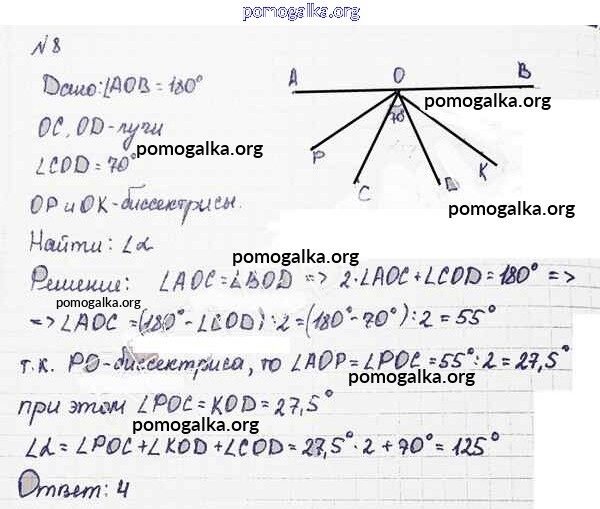 pomogalka.org
№8
Дано: ∠AOB = 180°
OC, OD - лучи
∠COD = 70°
OP и OK - биссектрисы.
Найти: ∠α
A O B
70°
P C D K
pomogalka.org
pomogalka.org
pomogalka.org
pomogalka.org
Решение: ∠AOC = ∠BOD => 2·∠AOC + ∠COD = 180° =>
pomogalka.org
=> ∠AOC = (180° - ∠COD) : 2 = (180° - 70°) : 2 = 55°
т.к. PO - биссектриса, то ∠AOP = ∠POC = 55° : 2 = 27,5°
pomogalka.org
при этом ∠POC = KOD = 27,5°
∠α = ∠POC + ∠KOD + ∠COD = 27,5° · 2 + 70° = 125°
pomogalka.org
Ответ: 4